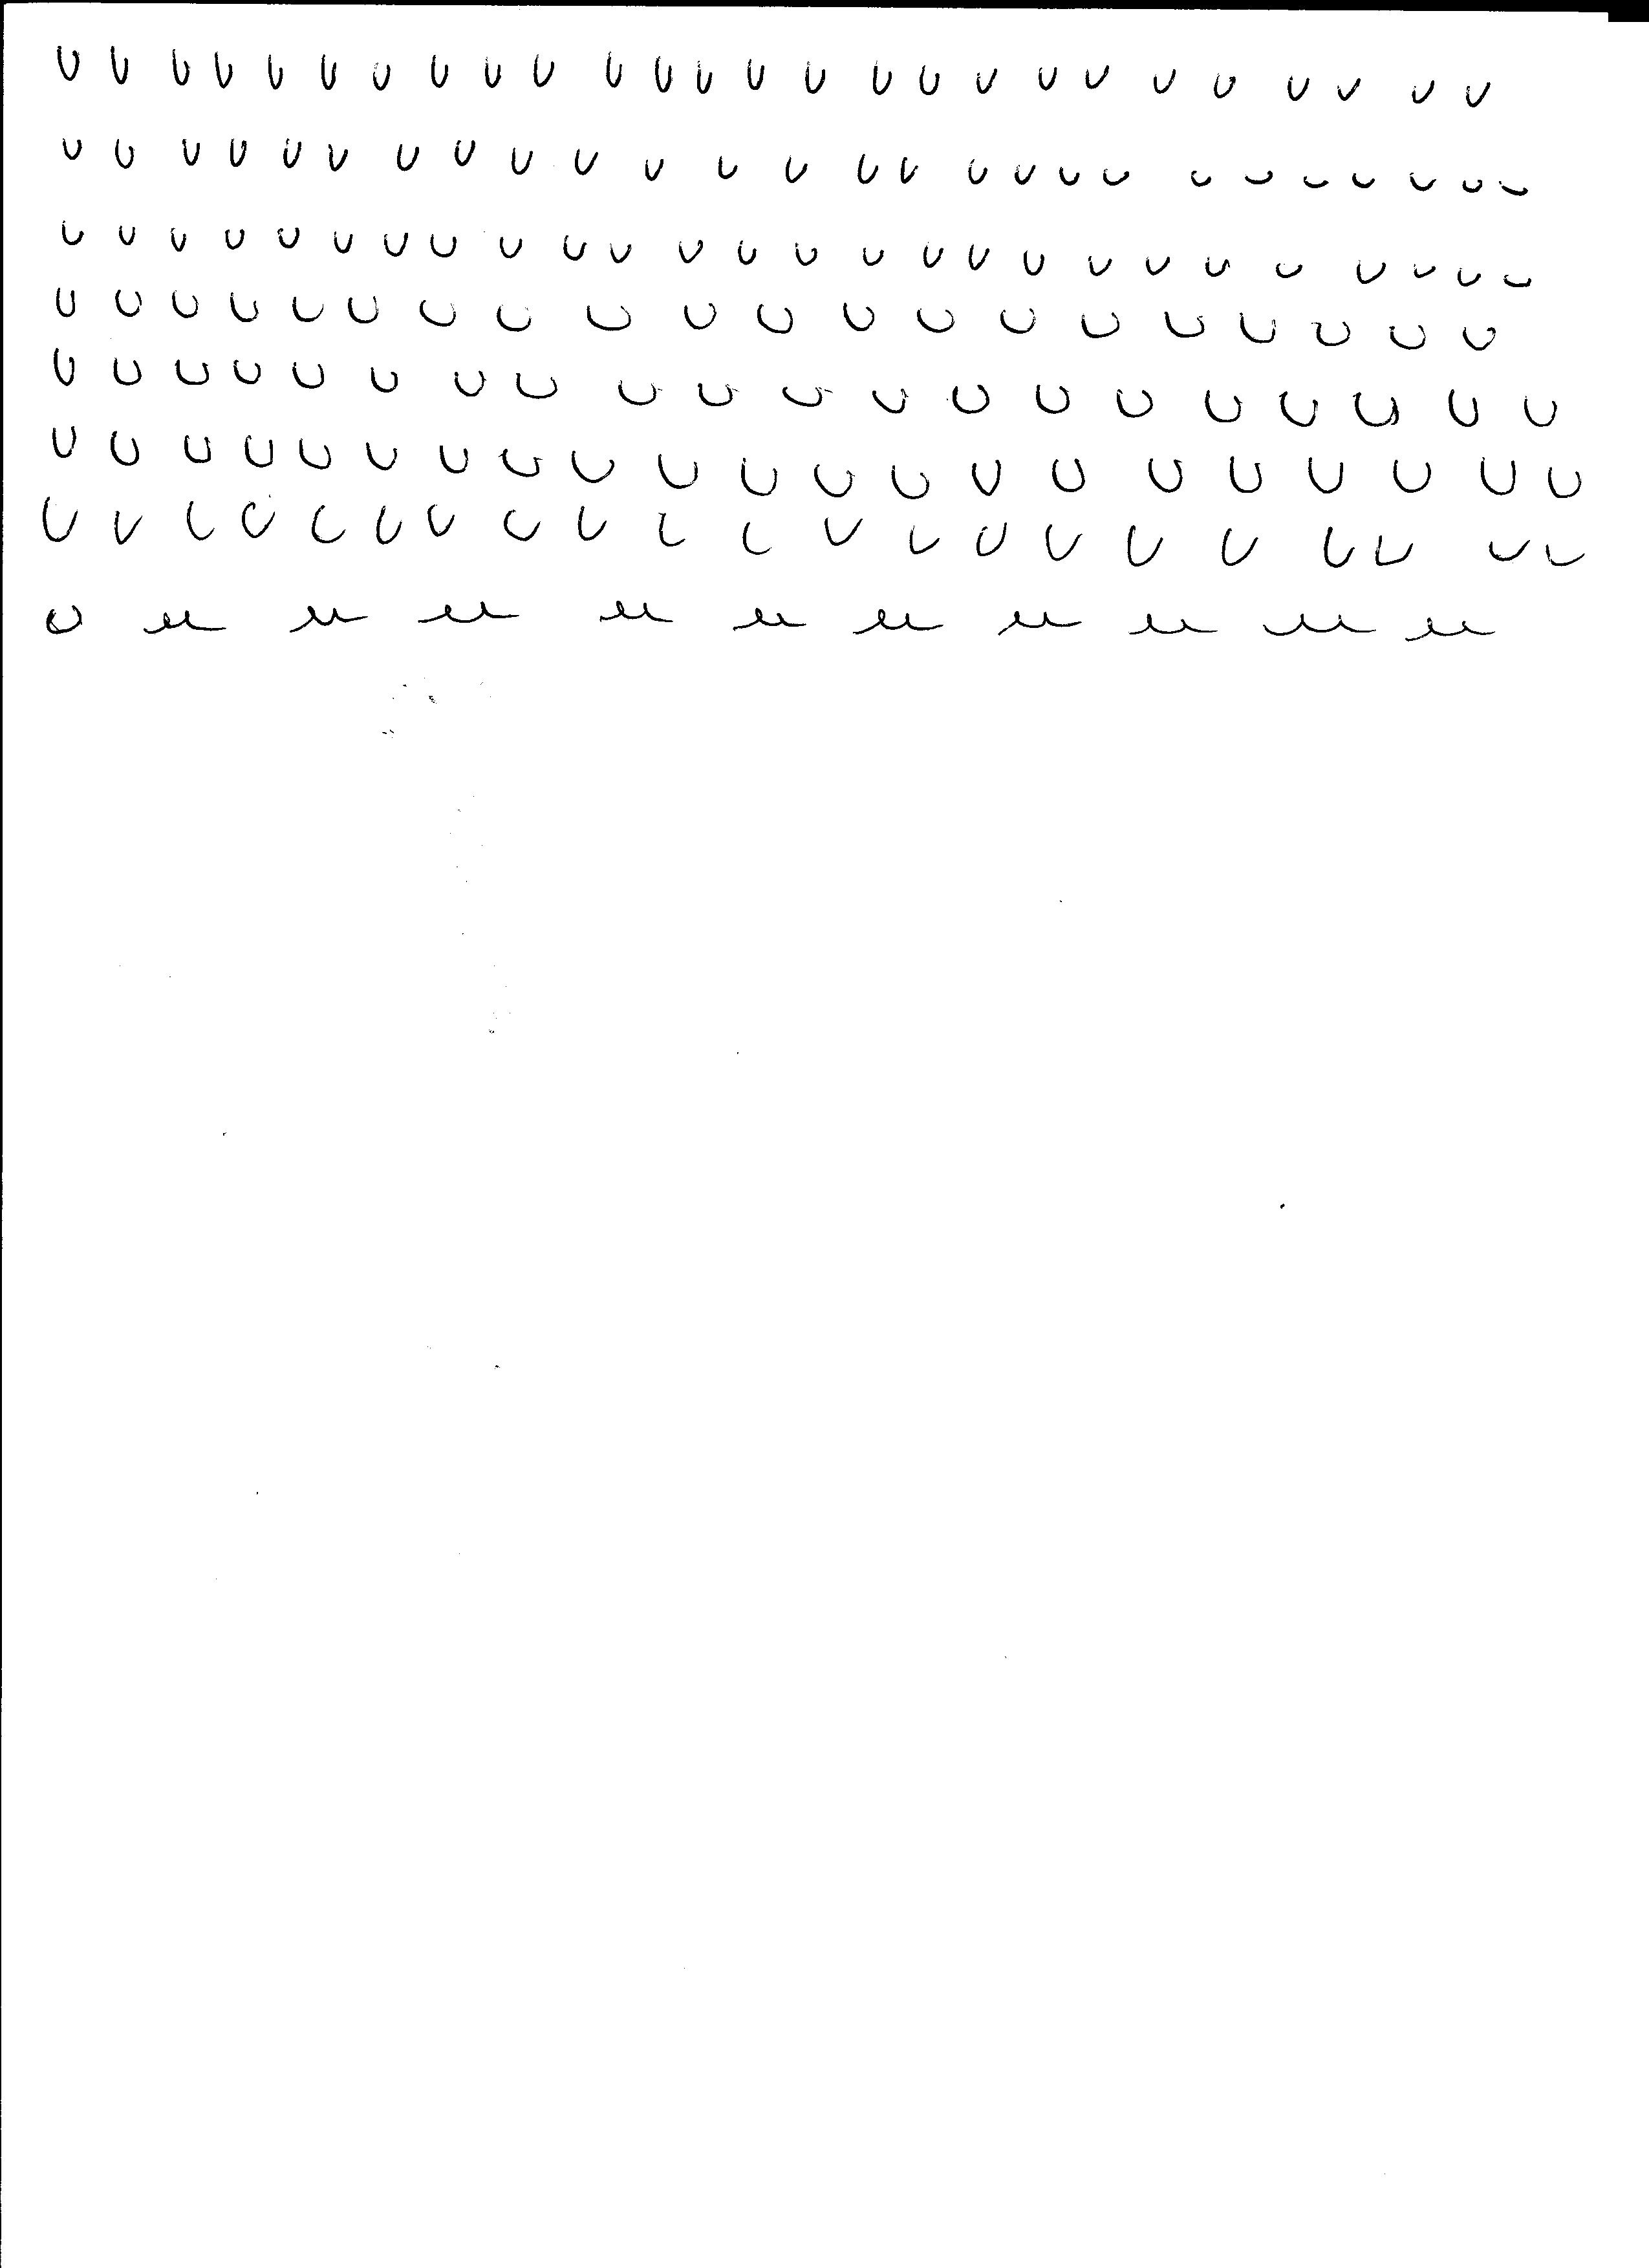 U U U U U U U U U U U U U U U U U U U U U U U U U U
U U U U U U U U U U U U U U U U U U U U U U U U U U
U U U U U U U U U U U U U U U U U U U U U U U U U U
U U U U U U U U U U U U U U U U U U U U
U U U U U U U U U U U U U U U U U U U U
U U U U U U U U U U U U U U U U U U U U U
U U U U U U U U U U U U U U U U U U U U U
U u u u u u u u u u u